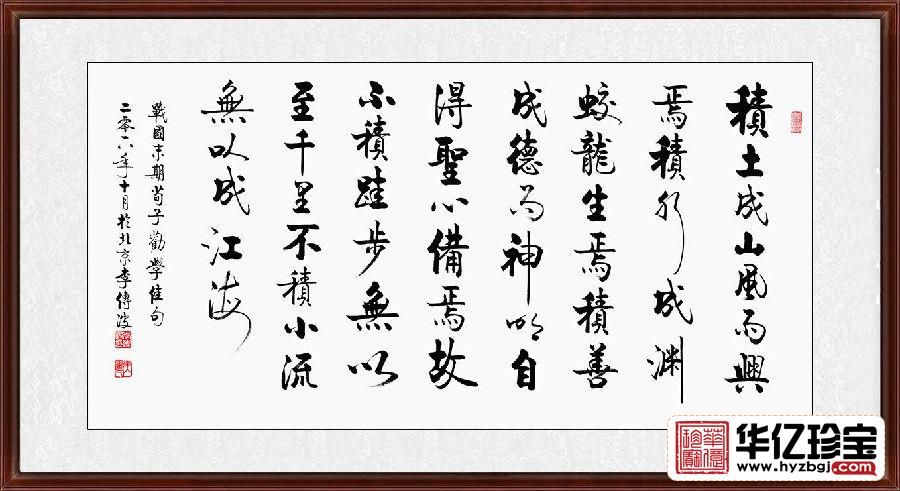 積土成山風雨興
焉積水成渊
蛟龍生焉積善
成德而神明自
得聖心備焉故
不積跬步無以
至千里不積小流
無以成江海
戰國末期荀子勸學佳句
二零一六年十月於北京李傳波
华亿珍宝
www.hyzbgj.com